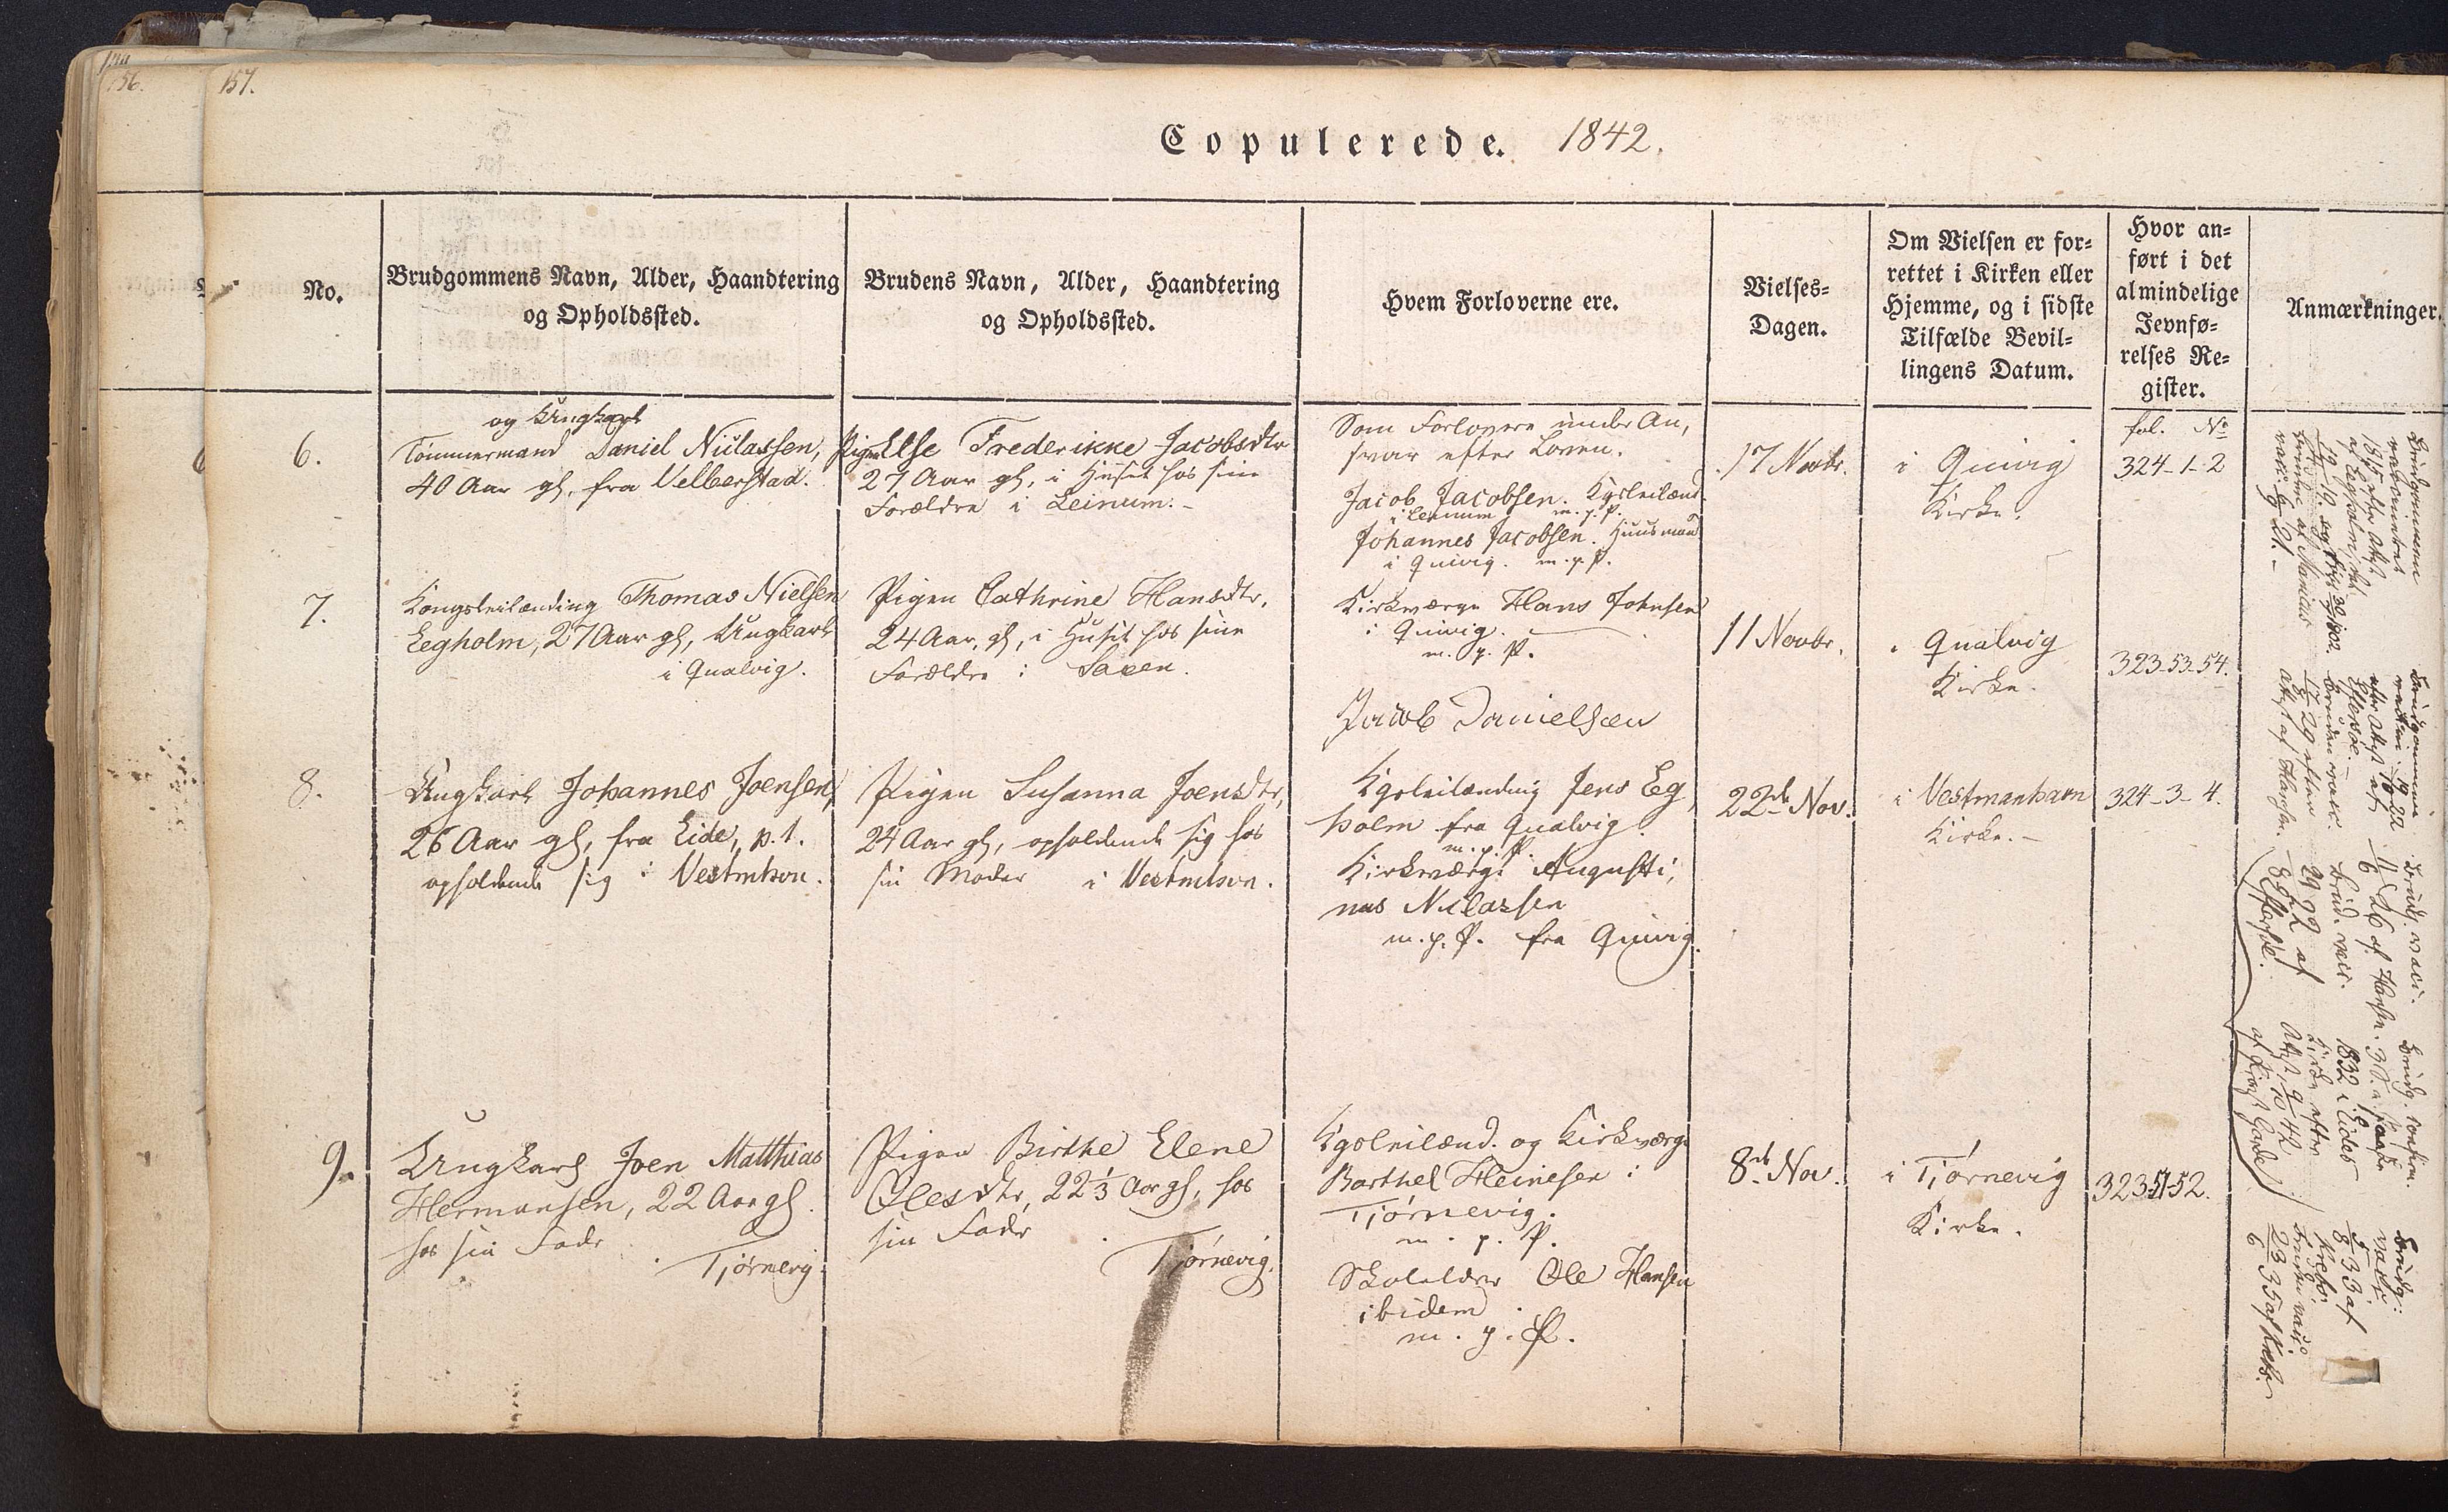 156.
157.
Copulerede. 1842.
No.
Brudgommens Navn, Alder, Haandtering
og Opholdssted.
Brudens Navn, Alder, Haandtering
og Opholdssted.
Hvem Forloverne ere.
Vielses-
Dagen.
Om Vielsen er for-
rettet i Kirken eller
Hjemme, og i sidste
Tilfælde Bevil-
lingens Datum.
Hvor an-
ført i det
almindelige
Jevnfø-
relses Re-
gister.
Anmærkninger.
6.
og Ungkarl
Tømmermand Daniel Niclassen,
40 Aar gl, fra Velberstad.
Pigen Else Frederikke Jacobsdtr
27 Aar gl, i Huset hos sine
Forældre i Leinum.-
Som Forlovere under An,
svar efter Loven.
Jacob Jacobsen. Kgsleilænd
i Leinum m. p. P.
Johannes Jacobsen. Huusmand
i Quivig. m. p. P.
17 Novbr.
i Quivig
Kirke.
fol. No
324-1-2
7.
Kongsleilænding Thomas Nielsen
Eegholm, 27 Aar gl, Ungkarl
i Qualvig.
Pigen Cathrine Hansdtr,
24 Aar, gl, i Huset hos sine
Forældre i Saxen.
Kirkværge Hans Johnsen
i Quivig.
m. p. P.
Jacob Danielsen
11 Novbr.
i Qualvig
Kirke.
323-53-54.
8.
Ungkarl Johannes Joensen,
26 Aar gl, fra Eide, p.t.
opholdende sig i Vestmhvn.
Pigen Susanna Joensdtr,
24 Aar gl, opholdende sig hos
sin Moder i Vestmhvn.
Kgsleilænding Jens Eg,
holm fra Qualvig.
m. p. P.
Kirkværge Augusti,
nus Niclassen
m. p. P. fra Quivig.
22de Nov.
i Vestmanhavn
Kirke.-
324-3-4.
9.
Ungkarl Joen Matthias
Hermansen, 22 Aar gl.
hos sin Fader
i Tjørnevig.
Pigen Birthe Elene
Olesdtr, 22 1/3 Aar gl, hos
sin Fader i
Tjørnevig.
Kgsleilænd. og Kirkværge
Barthel Heinesen i
Tjørnevig.
m. p. P.
Skolelærer Ole Hansen
ibidem.
m. p. P.
8de Nov.
i Tjørnevig
Kirke.
323-51-52.
Brudgommen
vaccineret
1815 efter Attest
Brudgommen
efter Attest af
Bruden vacc.
Attest af Hansen.
Brudg. vacc.
Brud. vacc.
Brudg. confirm.
1832 i Eide
Brudg:
vacc.